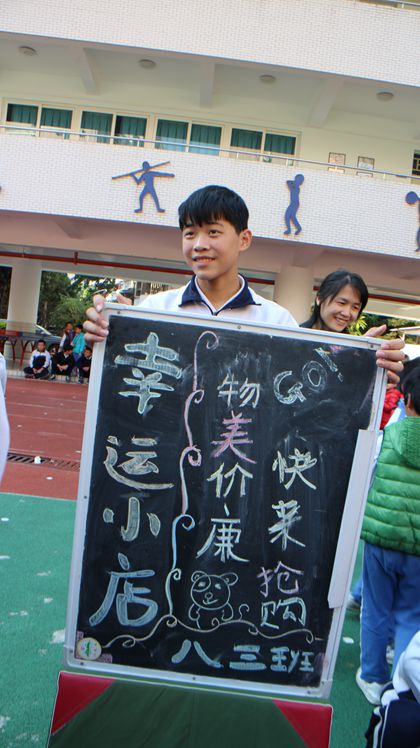 幸运小店
物美价廉
GO!
快来抢购
八三班